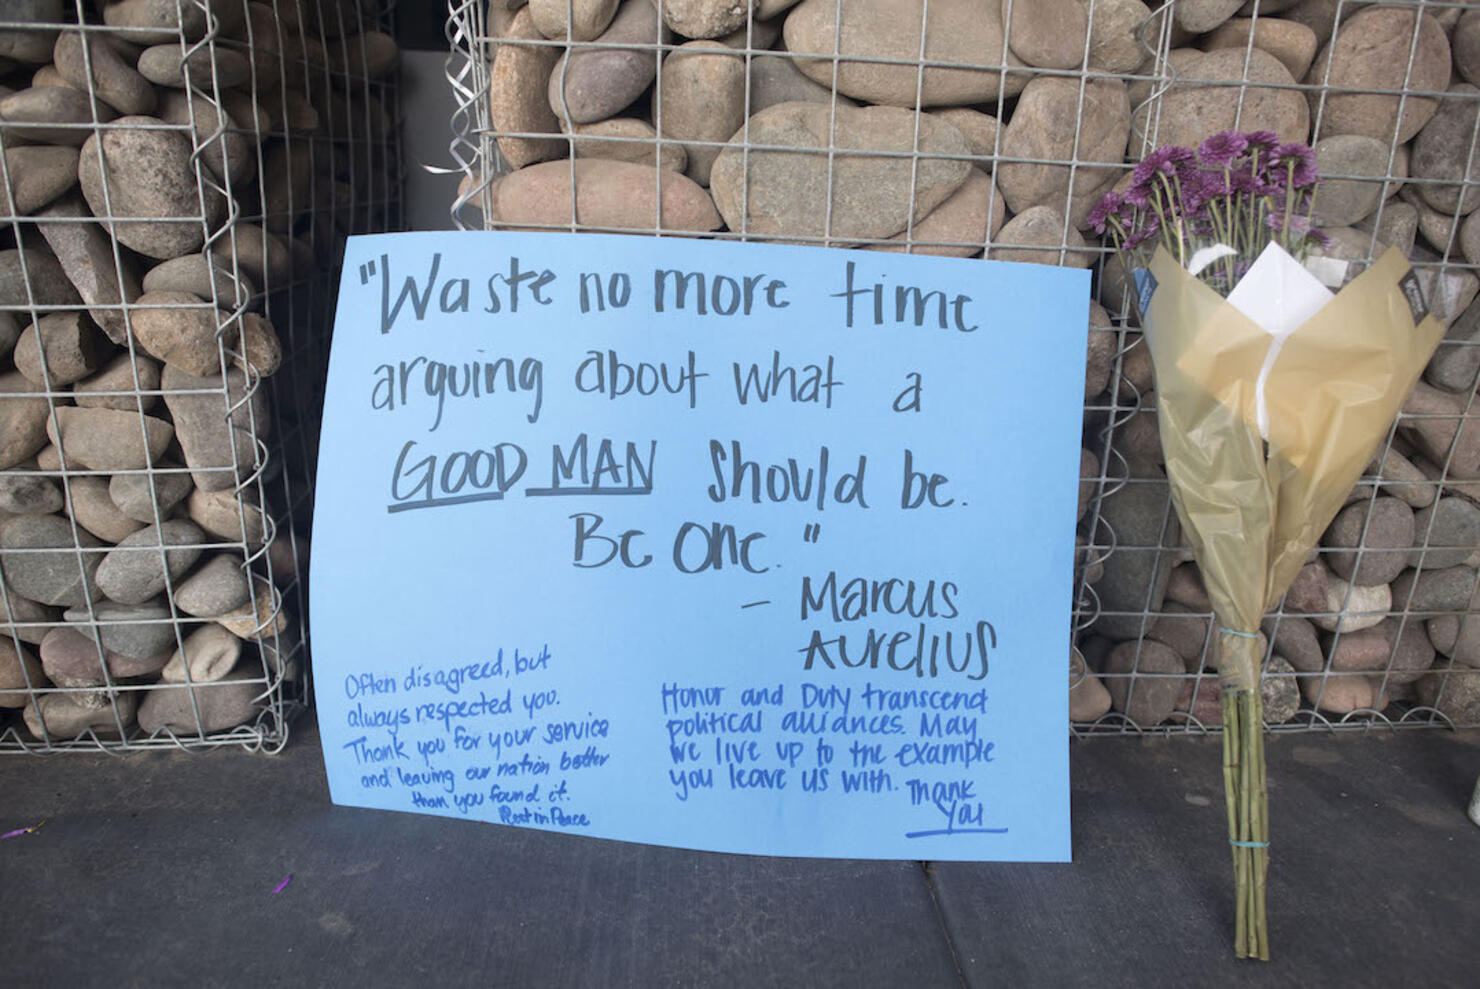 "Waste no more time
arguing about what a
GOOD MAN should be.
Be one."
- Marcus
Aurelius
Often disagreed, but
always respected you.
Thank you for your service
and leaving our nation better
than you found it.
Rest in Peace
Honor and Duty transcend
political alliances. May
we live up to the example
you leave us with. Thank
You